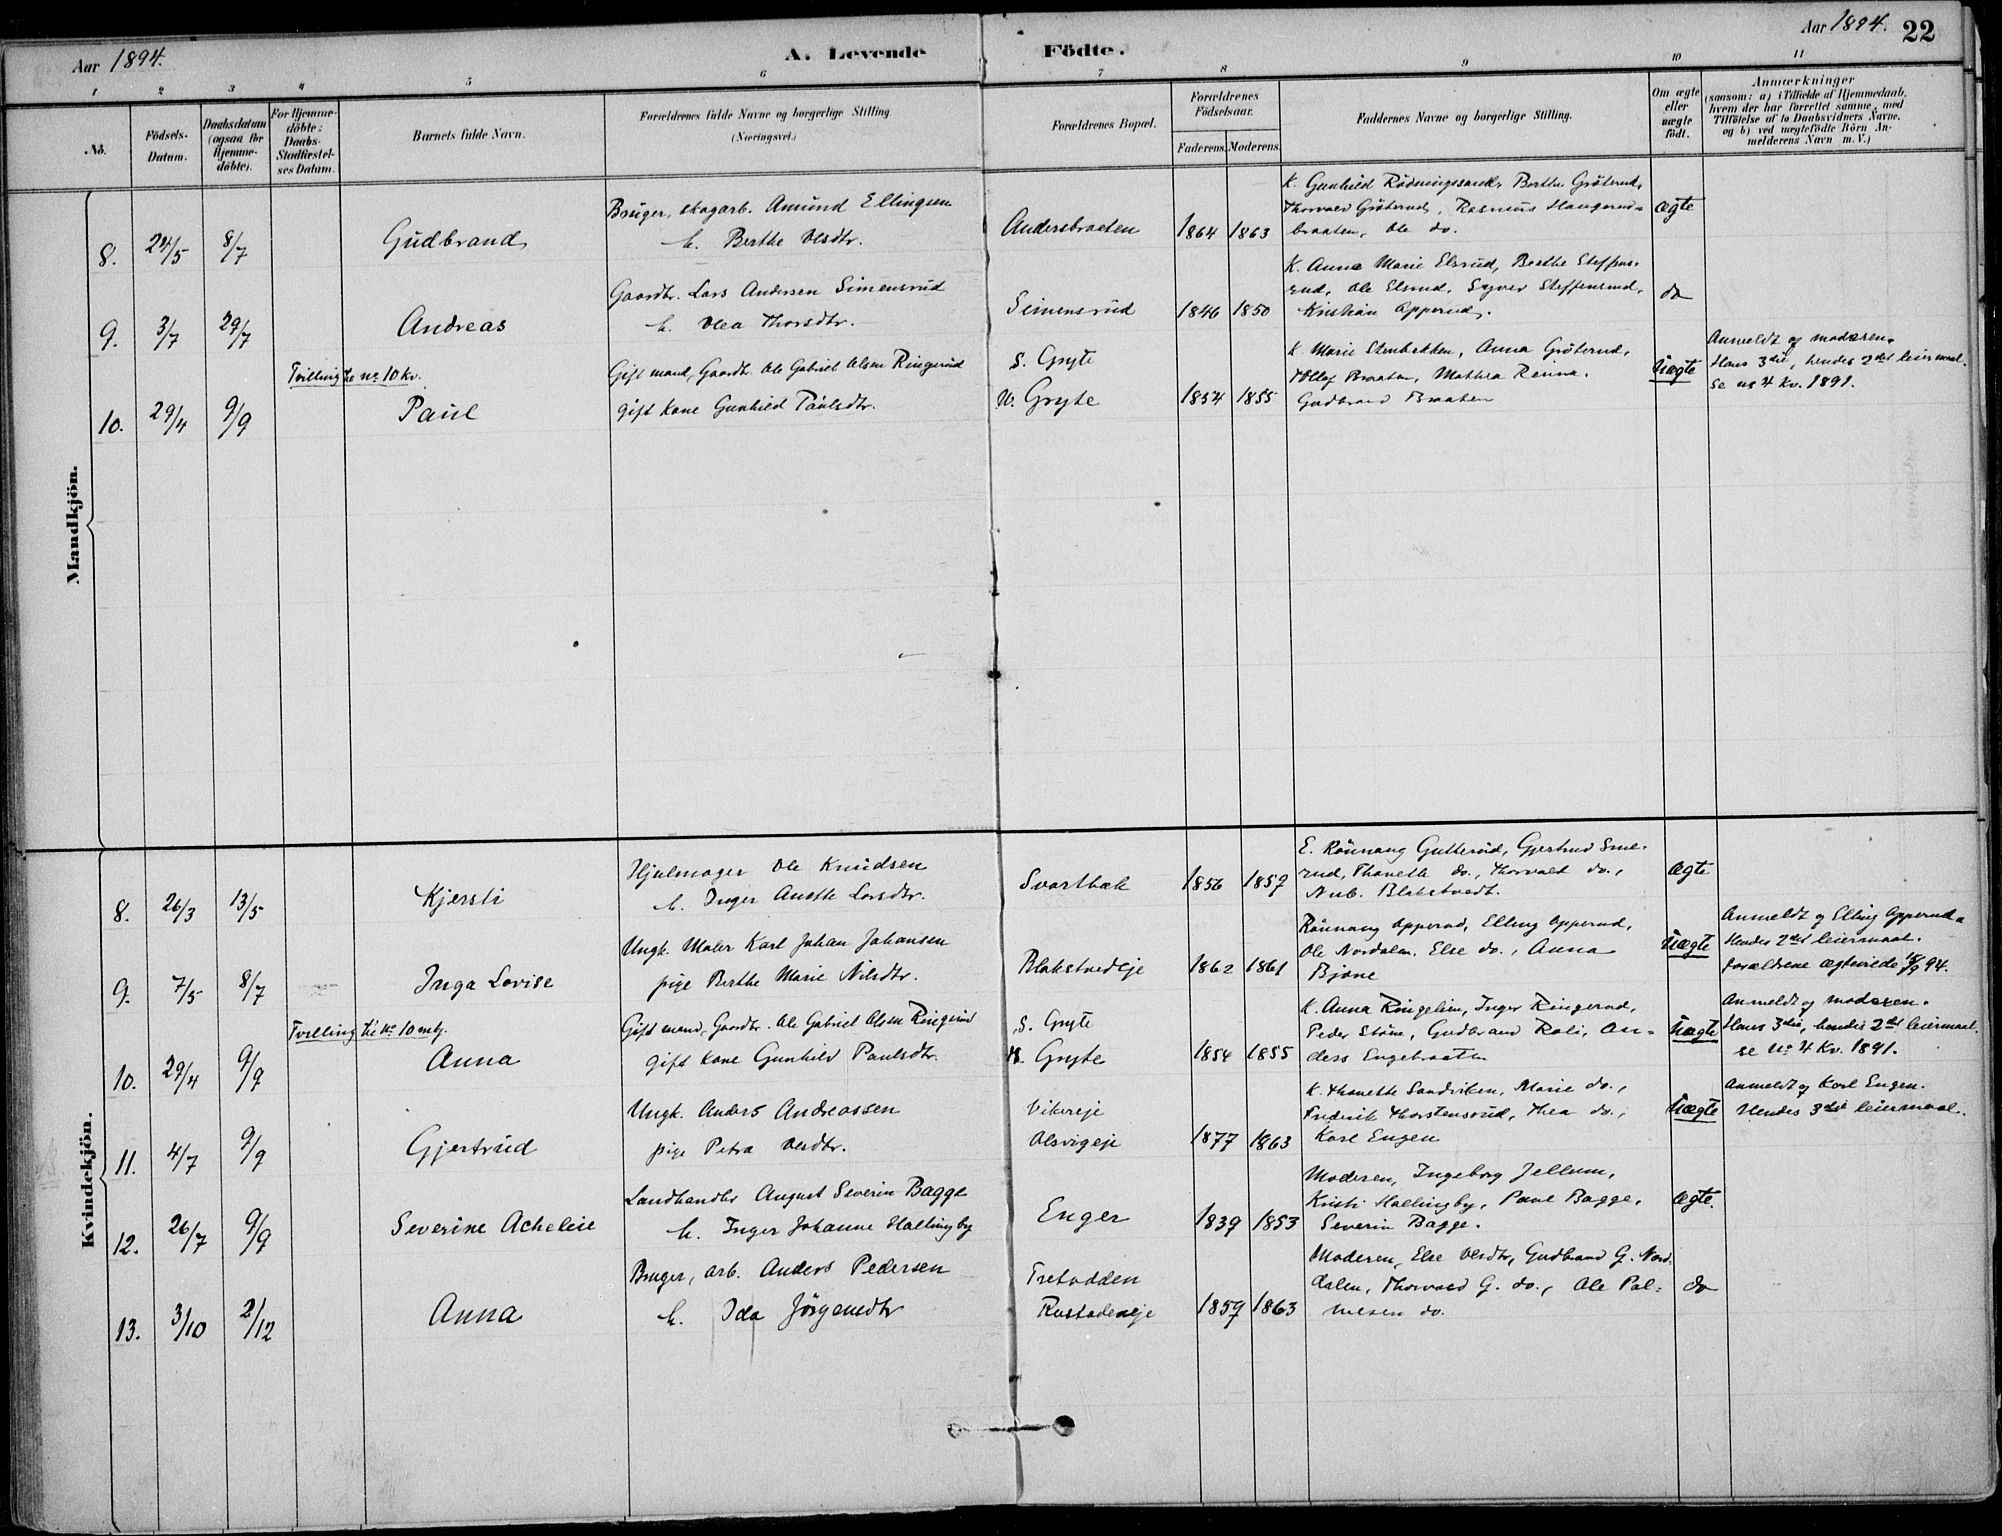 Aar 1894.
A. Levende Födte.
Aar 1894.
22
1 2 3 4 5 6 7 8 9 10 11
No.
Födsels-Datum.
Daabsdatum (ogsaa for Hjemme-döbte).
For Hjemme-döbte: Daabs-Stadfæstel-ses Datum.
Barnets fulde Navn.
Forældrenes fulde Navne og borgerlige Stilling. (Næringsvei.)
Forældrenes Bopæl.
Forældrenes Födselsaar.
Faderens. Moderens.
Faddernes Navne og borgerlige Stilling.
Om ægte eller uægte födt.
Anmærkninger
(saasom: a) i Tilfælde af Hjemmedaab, hvem der har forrettet samme, med Tilföielse af to Daabsvidners Navne, og b) ved uægtefödte Börn Anmelderens Navn m. V.)
Mandkjön.
K. Gunhild Berthe Gröterud,
Bruger, skogarb. Amund Ellingsen
Thorvald Gröterud, Rasmus Haugerud-
ægte
8. 24/5 8/7 Gudbrand h. Berthe Olsdtr. Andersbraaten 1864 1863 braaten, Ole do.
K. Anna Marie Elsrud, Berthe Steffens-
Gaardbr. Lars Andersen Simensrud
rud, Ole Elsrud, Syver Steffensrud,
do
9. 3/7 29/7 Andreas h. Olea Thorsdtr. Simensrud 1846 1850 Kristian Opperud.
Tvilling til no 10 Kv.
Gift mand, Gaardb. Ole Gabriel Olsen Ringerud
S. Gryte
K. Marie Stenbekken, Anna Gröterud,
Braaten, Mathea Renna.
Uægte
Anmeldt af moderen.
Hans 3die, hendes 2det leiermaal.
se no 4 Kv. 1891.
10. 29/4 9/9 Paul gift Kone Gunhild Paulsdtr. N. Gryte 1854 1855 Gudbrand Braaten
Kvindekjön.
Hjulmager Ole Knudsen
E. Rönnaug Gutterud, Gjertrud Sme-
rud, Thanette do., Thorvald do.,
Ægte
8. 26/3 13/5 Kjersti h. Inger Anette Larsdtr. Svartbæk 1856 1857 Blakstvedt.
Ungk. Maler Karl Johan Johansen
Rönnaug Opperud, Elling Opperud,
Ole Nordalen, Else do., Anna
Uægte
Anmeldt af Elling Opperud.
Hendes 2det leiermaal.
forældrene ægteviede 94.
9. 7/5 8/7 Inga Lovise pige Berthe Marie Nilsdtr. Blakstvedeje 1862 1861 Bjone
Tvilling til no 10 mkj.
Gift mand, Gaardbr. Ole Gabriel Olsen Ringerud
S. Gryte
K. Anna Ringelien, Inger Ringerud,
Peder Stöne, Gudbrand Roli, An-
Uægte
Anmeldt af moderen.
Hans 3die, hendes 2det leiermaal.
se No 4 Kv. 1891.
10. 29/4 9/9 Anna gift Kone Gunhild Paulsdtr. N. Gryte 1854 1855 ders Engebraaten
Ungk. Anders Andreassen
Vikereje
K. Thanette Sandviken, Marie do.,
Frederik Thorstensrud, Thea do.,
Uægte
Anmeldt af Karl Engen.
Hendes 3die leiermaal.
11. 4/7 9/9 Gjertrud pige Petra Olsdtr. Olsvigeje 1877 1863 Karl Engen
Landhandler August Severin Bagge
Moderen, Ingeborg Jellum,
Kristi Hallingby, Paul Bagge,
Ægte.
12. 26/7 9/9 Severine Acheleie h. Inger Johanne Hallingby Enger 1839 1853 Severin Bagge.
Bruger, arb. Anders Pedersen
Tretodden
Moderen, Else Olsdtr, Gudbrand G. Nor-
dalen, Thorvald G. do., Ole Pal-
do
13. 3/10 2/12 Anna h. Ida Jörgensdtr Rustadeneje 1859 1863 mesen do.